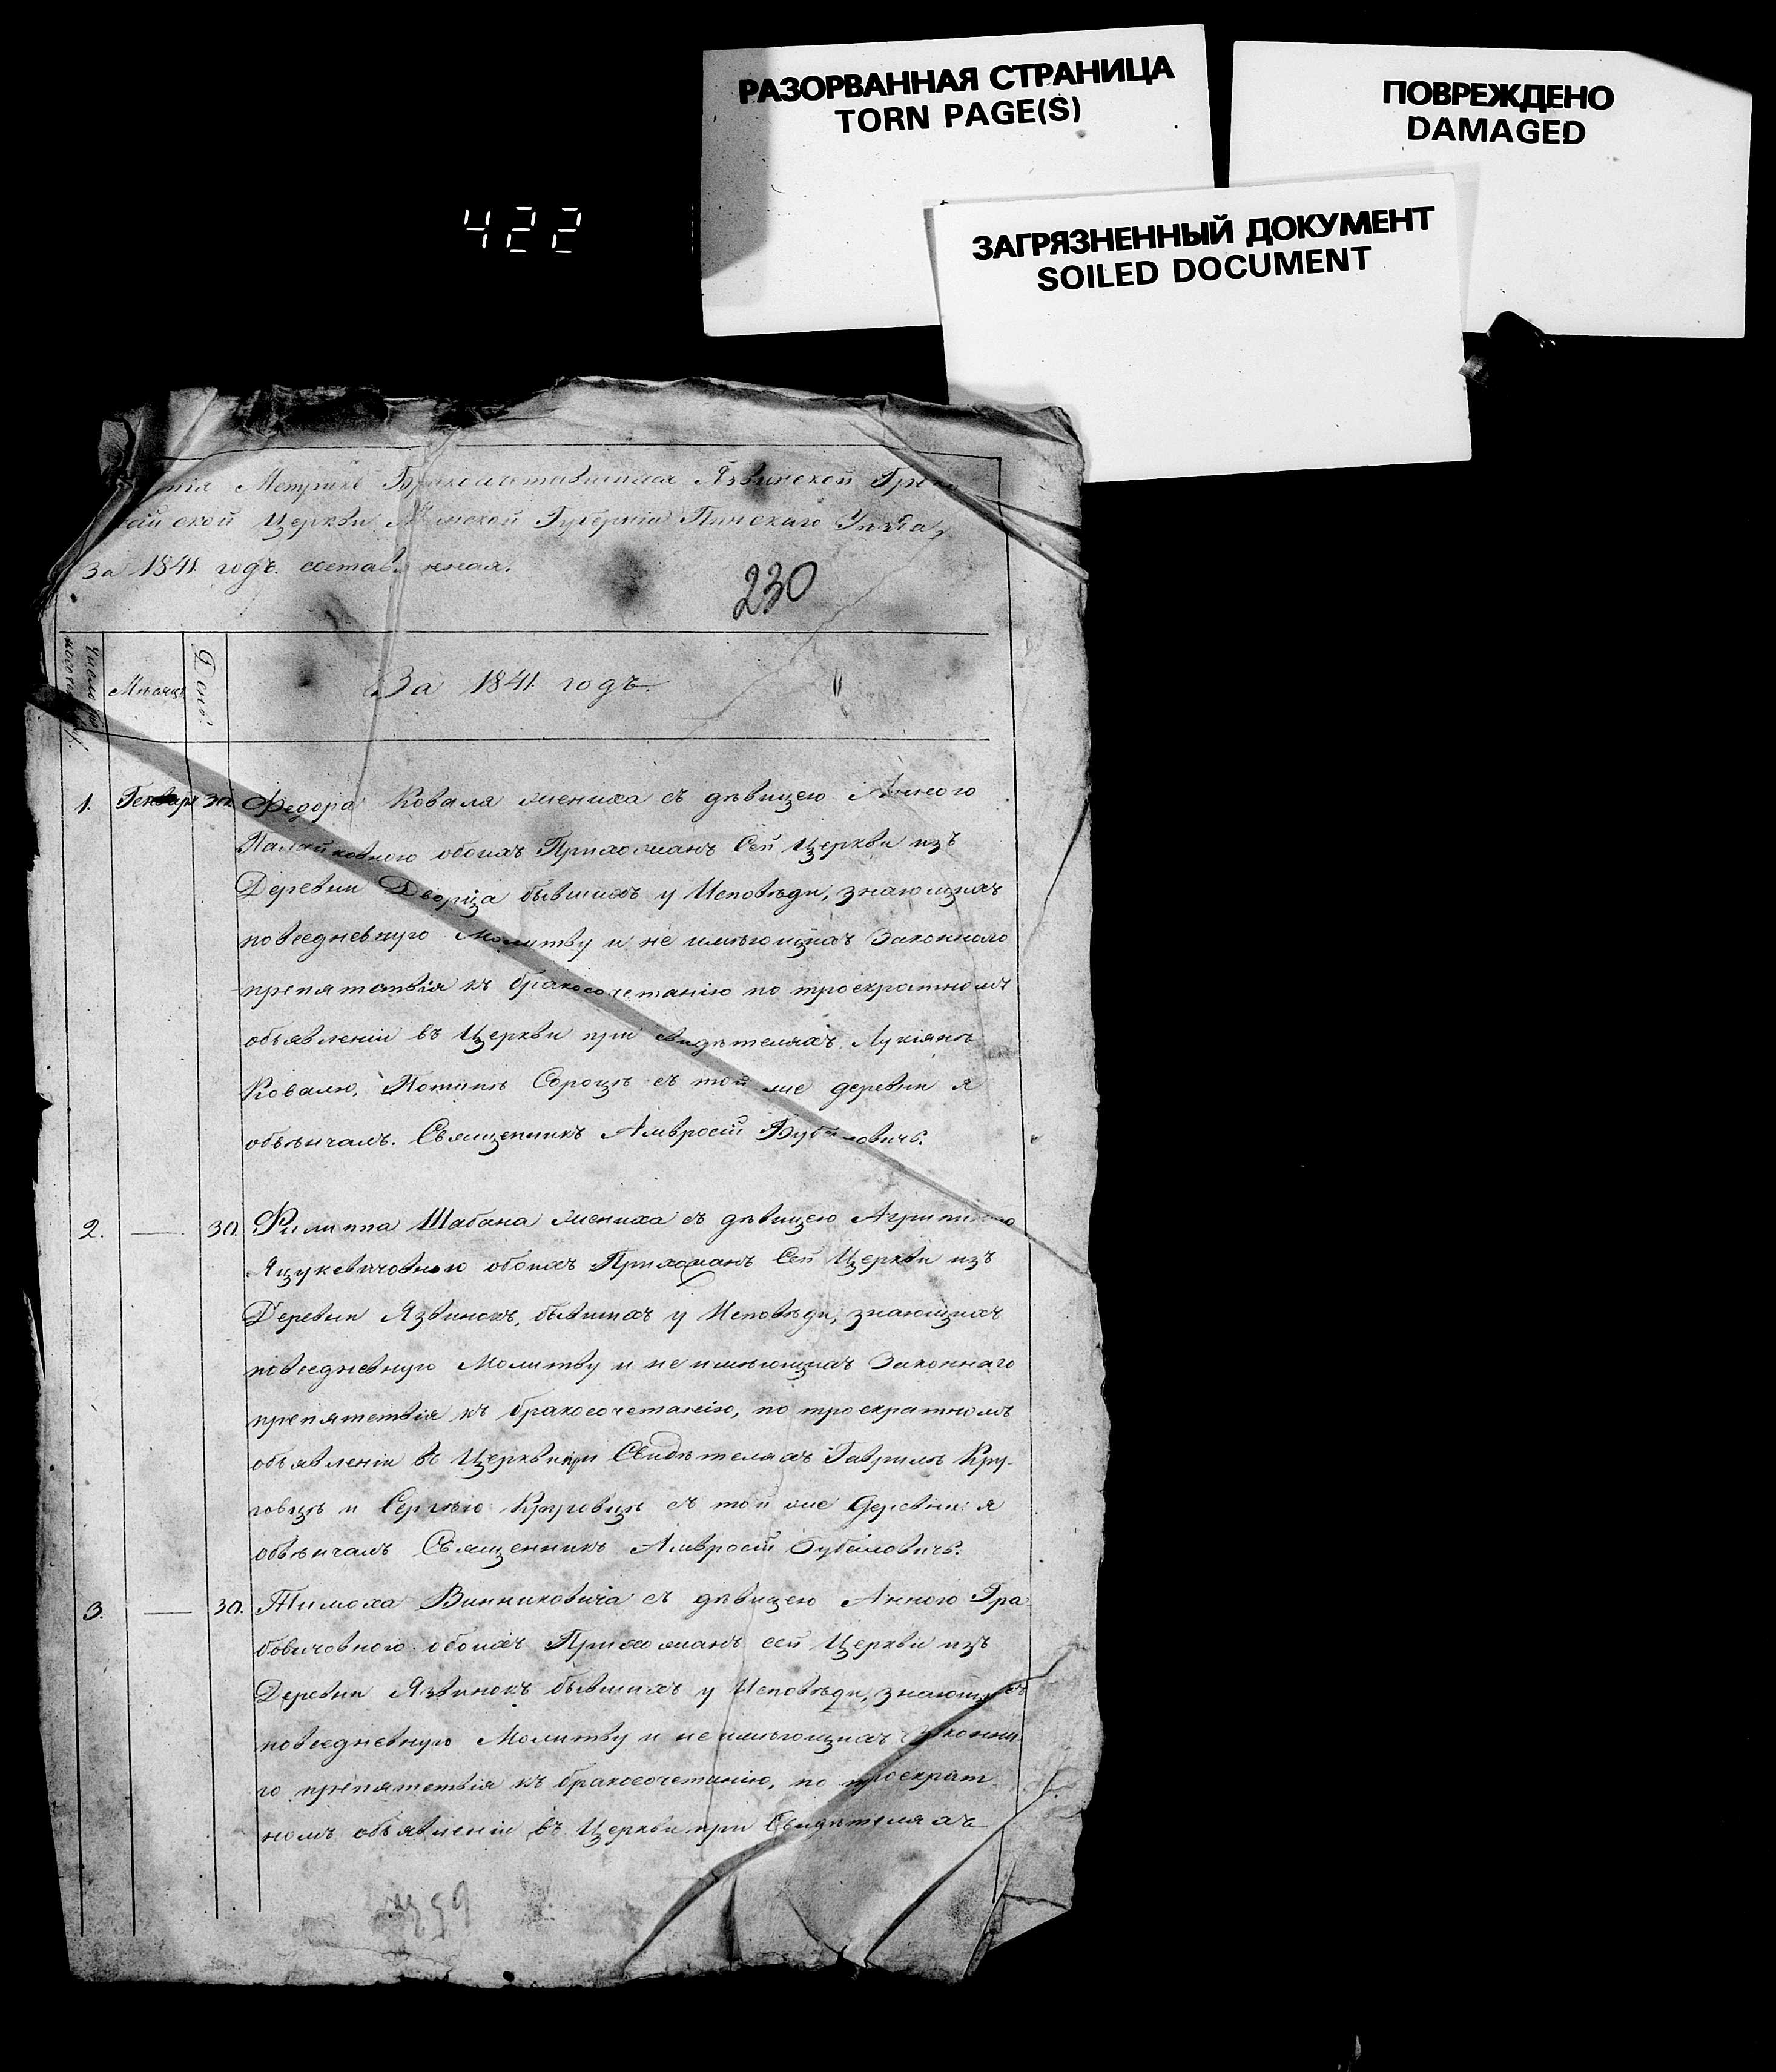 РАЗОРВАННАЯ СТРАНИЦА
TORN PAGE(S)
ПОВРЕЖДЕНО
DAMAGED
ЗАГРЯЗНЕННЫЙ ДОКУМЕНТ
SOILED DOCUMENT
422
Метрикъ Язвинской
Церкви Минской Губерніи Пинскаго Уѣзда,
За 1841 годъ
230
Мѣсяцъ
День
За 1841 годъ.
1. Генваря 30. Федора Коваля жениха съ дѣвицею Анною
обоихъ Прихожанъ Сей Церкви изъ
Деревни Дворца бывшихъ у Исповѣди, знающихъ
повседневную Молитву и не имѣющихъ Законнаго
препятствія къ бракосочетанію по троекратномъ
объявленіи въ Церкви при свидѣтеляхъ Лукіянѣ
Ковалю, Сороцѣ съ той же деревни я
обвѣнчалъ. Священникъ Амвросій
2. — 30. Филиппа Шабана жениха съ дѣвицею
Яцукевичовною обоихъ Прихожанъ Сей Церкви изъ
Деревни Язвинокъ, бывшихъ у Исповѣди, знающихъ
повседневную Молитву и не имѣющихъ Законнаго
препятствія къ бракосочетанію, по троекратномъ
объявленіи въ Церкви при Свидѣтеляхъ Гаврилѣ Кру-
говцѣ и Сергѣю Круговцѣ съ той же деревни я
обвѣнчалъ Священникъ Амвросій
3. — 30. Тимоха Винниковича съ дѣвицею Анною Гра-
бовичовною обоихъ Прихожанъ сей Церкви изъ
Деревни Язвинокъ бывшихъ у Исповѣди, знающихъ
повседневную Молитву и не имѣющихъ Законна-
го препятствія къ бракосочетанію, по троекрат-
номъ объявленіи въ Церкви при Свидѣтеляхъ